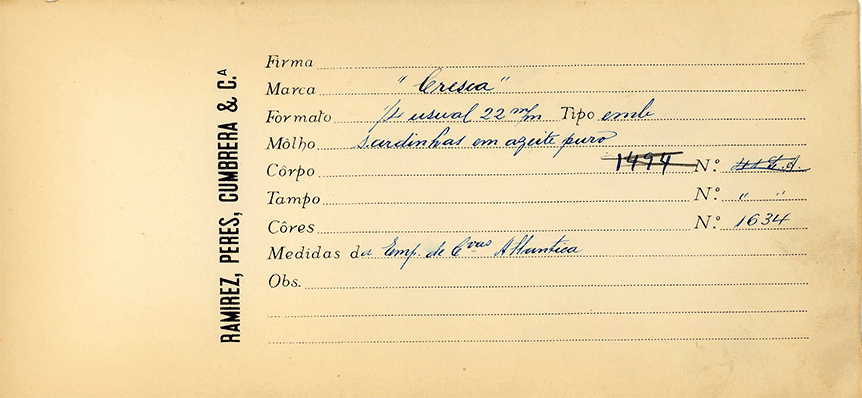 RAMIREZ, PERES, CUMBRERA & C.ᴬ
Firma
Marca "Cresca"
Formato ¼ usual 22 m/m Tipo emb
Môlho sardinhas em azeite puro
Côrpo 1494 N.º
Tampo N.º " "
Côres N.º 1634
Medidas da Emp. de Cvas Atlantica
Obs.